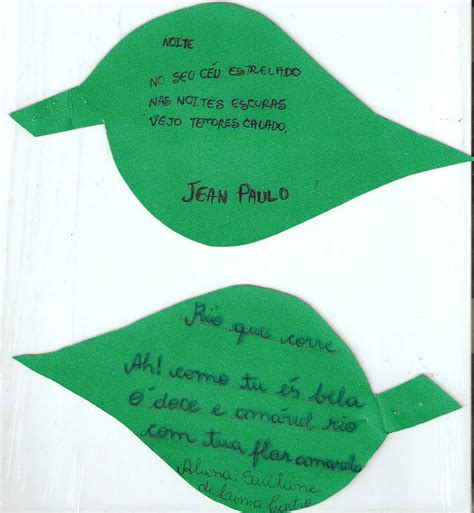 NOITE
NO SEU CÉU ESTRELADO
NAS NOITES ESCURAS
VEJO TEMORES CALADO.
JEAN PAULO
Rio que corre
Ah! como tu és bela
Ó doce e amável rio
com tua flor amarela
Aluna: Suilane
de Lima